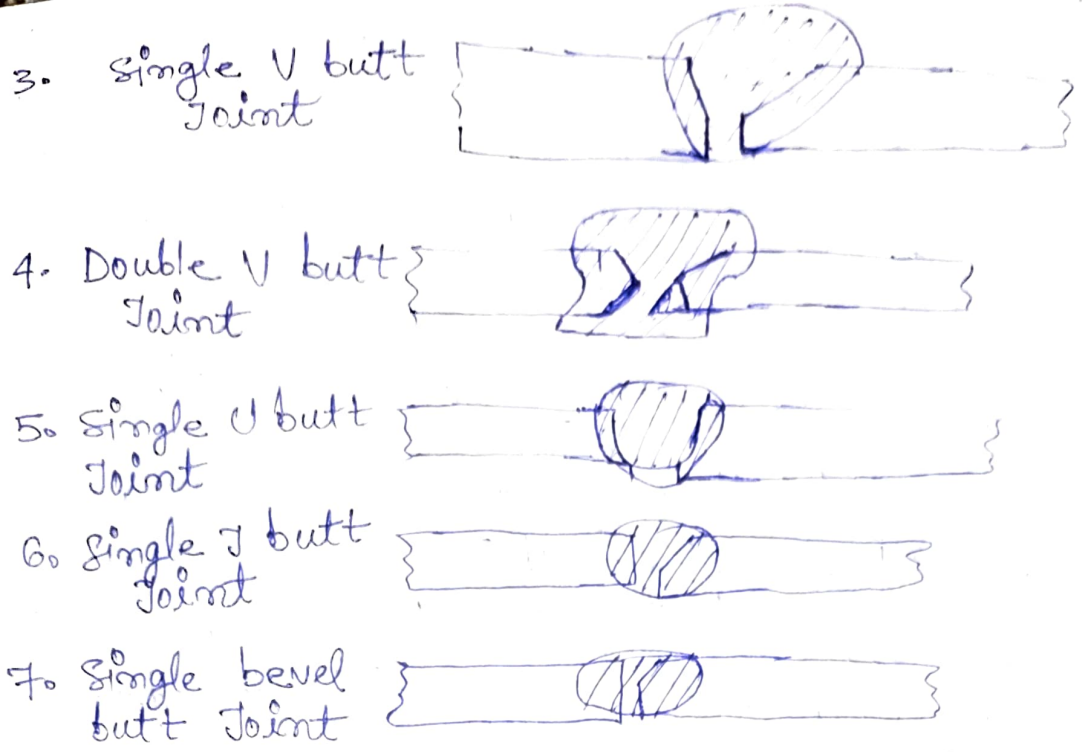 3. Single V butt
Joint
4. Double V butt
Joint
5. Single U butt
Joint
6. Single J butt
Joint
7. Single bevel
butt Joint